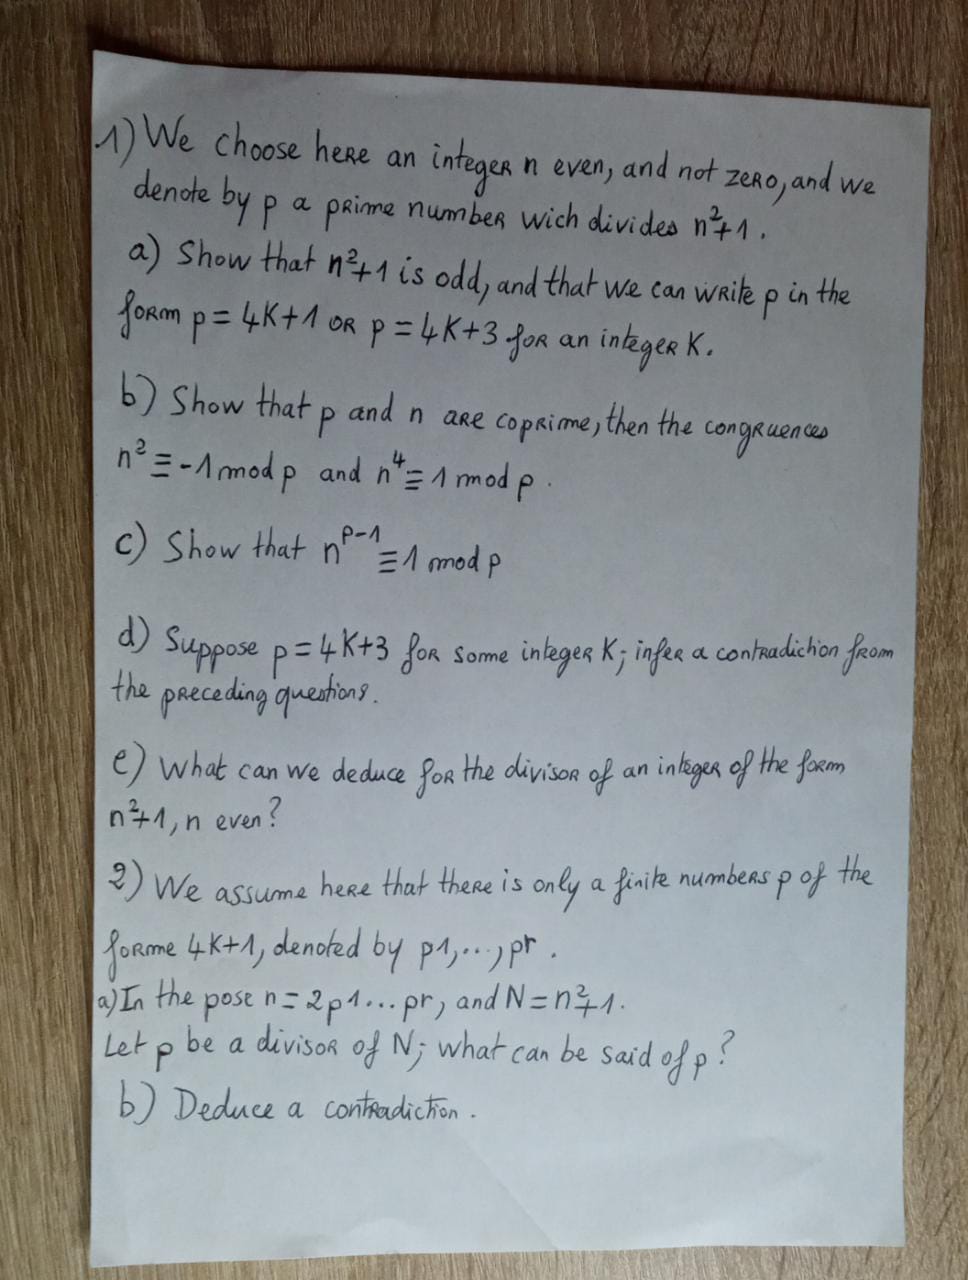 1) We choose here an integer n even, and not zero, and we
denote by p a prime number wich divides n²+1.
a) Show that n²+1 is odd, and that we can write p in the
form p = 4K+1 or p = 4K+3 for an integer K.
b) Show that p and n are coprime, then the congruences
n² ≡ -1 mod p and n⁴ ≡ 1 mod p.
c) Show that nᵖ⁻¹ ≡ 1 mod p
d) Suppose p = 4K+3 for some integer K; infer a contradiction from
the preceding questions.
e) What can we deduce for the divisor of an integer of the form
n²+1, n even?
2) We assume here that there is only a finite numbers p of the
forme 4K+1, denoted by p1,...,pr.
a) In the pose n = 2p1...pr, and N = n²+1.
Let p be a divisor of N; what can be said of p?
b) Deduce a contradiction.